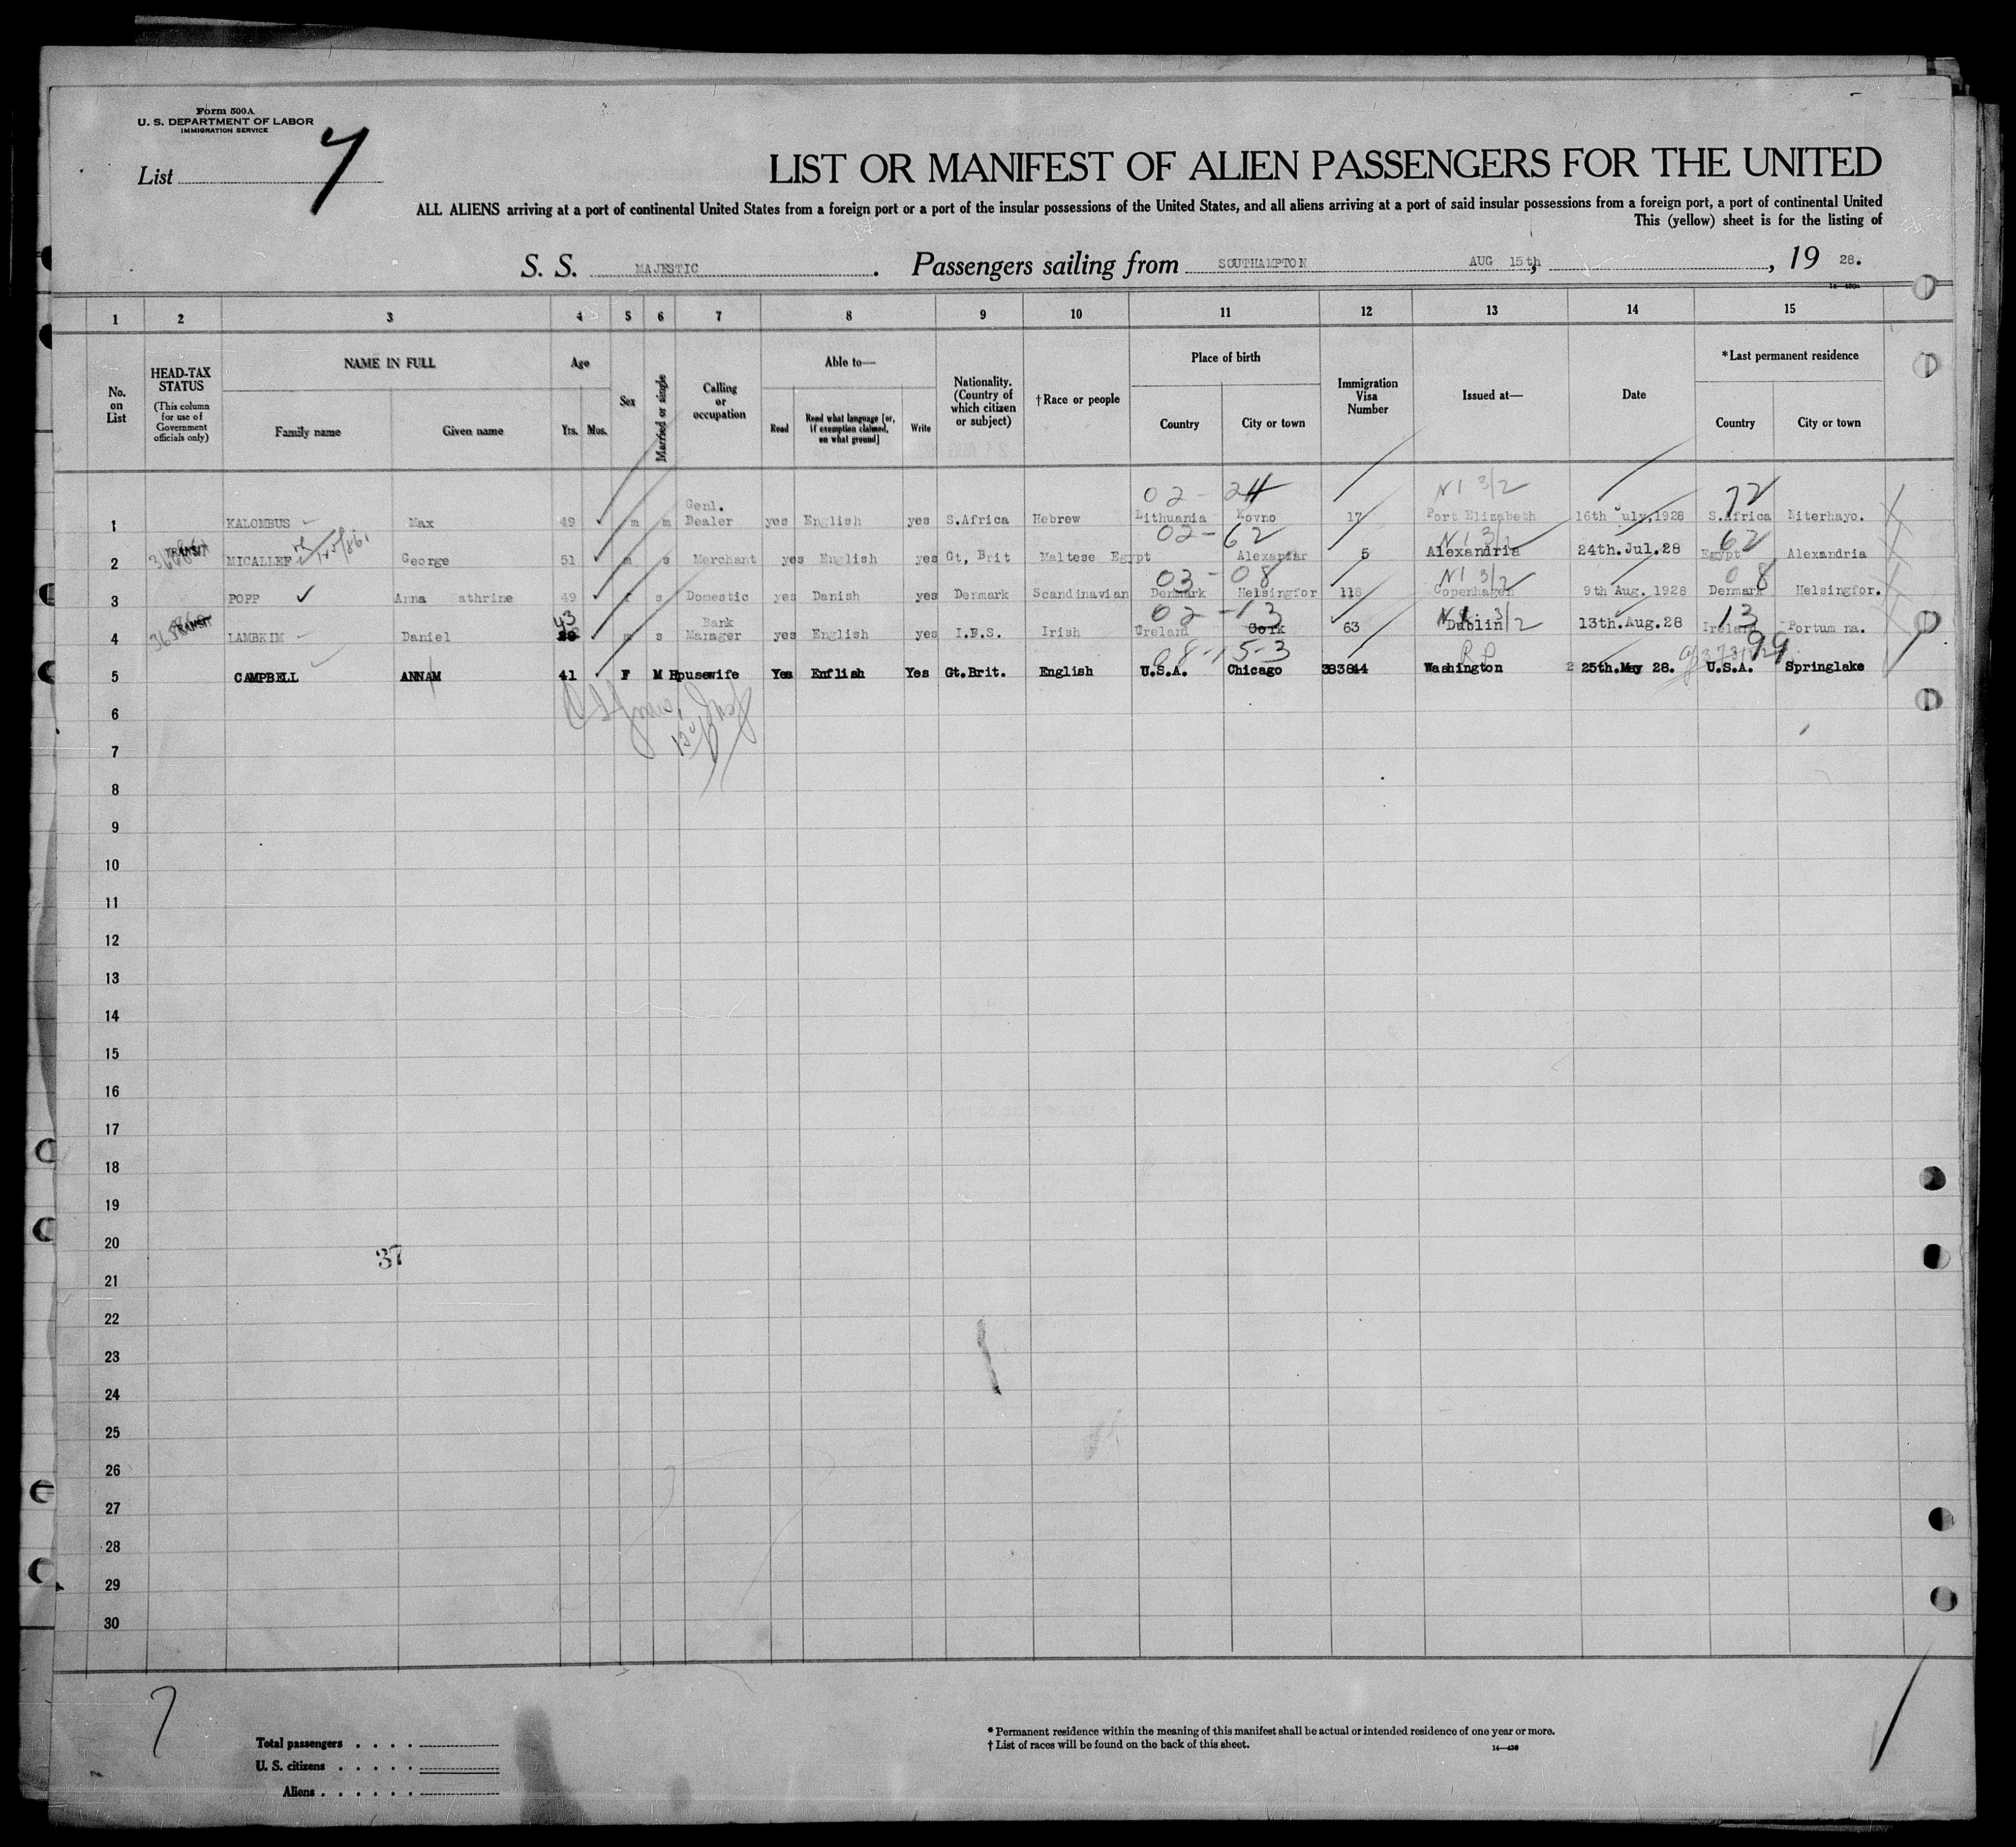 Form 500A
U. S. DEPARTMENT OF LABOR
IMMIGRATION SERVICE
List 7
LIST OR MANIFEST OF ALIEN PASSENGERS FOR THE UNITED
ALL ALIENS arriving at a port of continental United States from a foreign port or a port of the insular possessions of the United States, and all aliens arriving at a port of said insular possessions from a foreign port, a port of continental United
This (yellow) sheet is for the listing of
S. S. MAJESTIC. Passengers sailing from SOUTHAMPTON AUG 15th, 19 28.
1 2 3 4 5 6 7 8 9 10 11 12 13 14 15
No. on List
HEAD-TAX STATUS
(This column for use of Government officials only)
NAME IN FULL
Family name Given name
Age
Yrs. Mos.
Sex
Married or single
Calling or occupation
Able to—
Read
Read what language [or, if exemption claimed, on what ground]
Write
Nationality. (Country of which citizen or subject)
†Race or people
Place of birth
Country City or town
Immigration Visa Number
Issued at—
Date
*Last permanent residence
Country City or town
02-24 N1 3/2 72
1 KALOMBUS Max 49 m m Genl. Dealer yes English yes S.Africa Hebrew Lithuania Kovno 17 Port Elizabeth 16th July,1928 S.Africa Niterhayo.
02-62 N1 3/2 62
2 TRANSIT MICALLEF George 51 m s Merchant yes English yes Gt, Brit Maltese Egypt Alexandar 5 Alexandria 24th.Jul.28 Egypt Alexandria
03-08 N1 3/2 08
3 POPP Anna athrine 49 f s Domestic yes Danish yes Denmark Scandinavian Denmark Helsingfor 118 Copenhagen 9th Aug. 1928 Denmark Helsingfor.
02-13 N1 3/2 13
4 TRANSIT LAMBKIM Daniel 43 m s Bank Manager yes English yes I.F.S. Irish Ireland Cork 63 Dublin 13th.Aug.28 Ireland Portum na.
08-15-3 RP 99
5 CAMPBELL ANNAM 41 F M Housewife Yes Enflish Yes Gt.Brit. English U.S.A. Chicago 383844 Washington 25th.May 28. U.S.A. Springlake
6
7
8
9
10
11
12
13
14
15
16
17
18
19
20
37
21
22
23
24
25
26
27
28
29
30
Total passengers . . . .
U. S. citizens . . . . .
Aliens . . . . . .
* Permanent residence within the meaning of this manifest shall be actual or intended residence of one year or more.
† List of races will be found on the back of this sheet.